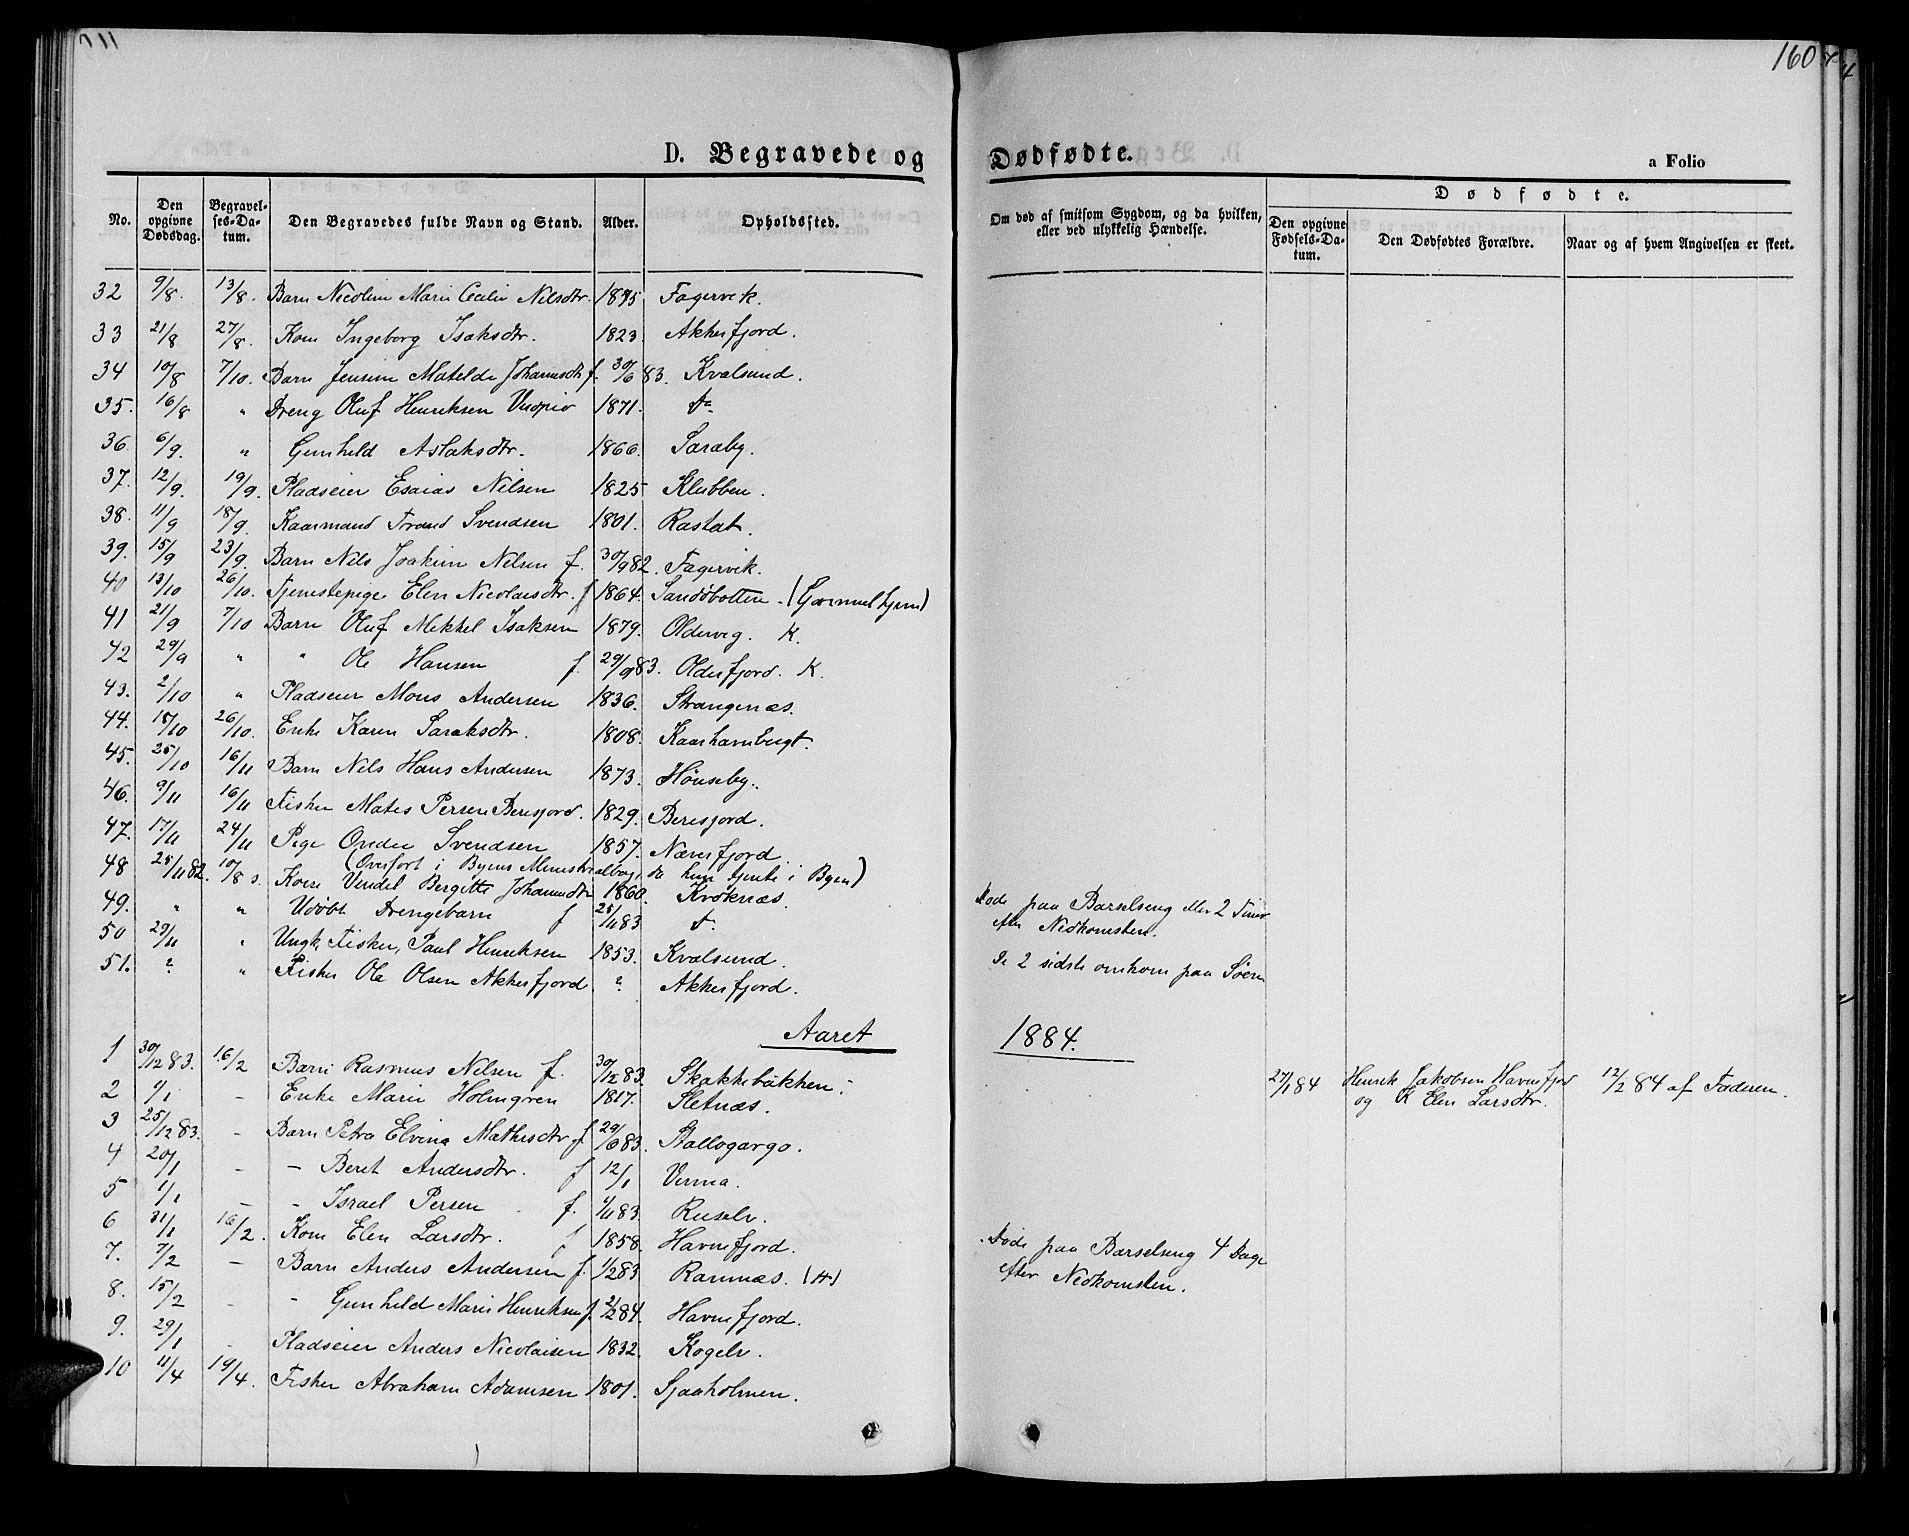 160
D. Begravede og Dødfødte.
a Folio
No. | Den opgivne Dødsdag. | Begravelses-Datum. | Den Begravedes fulde Navn og Stand. | Alder. | Opholdssted. | Om død af smitsom Sygdom, og da hvilken, eller ved ulykkelig Hændelse. | Dødfødte. | Den opgivne Fødsels-Datum. | Den Dødfødtes Forældre. | Naar og af hvem Angivelsen er skeet.
32 9/8. 13/8. Barn Nicoline Marie Cecilie Nilsdtr. 1875 Fagervik.
33 21/8 27/8. Kone Ingeborg Isaksdtr. 1823. Akkerfjord.
34 10/8 7/10. Barn Jensine Matelde Johannsdtr f. 30/6 83. Kvalsund.
35. 16/8 " Dreng Oluf Henriksen 1871. Do
36 6/9. " Gunhild Aslaksdtr. 1866. Saraby.
37. 12/9. 19/9. Pladseier Esaias Nilsen 1825 Klubben.
38. 11/9 18/9. Kaarmand Trond Svendsen 1801. Rastat.
39. 15/9 23/9. Barn Nils Joakim Nilsen f. 30/9 82. Fagervik.
40 13/10 26/10. Tjenestepige Elen Nicolaisdtr. f 1864. Sandøbotten.
41 21/9 7/10 Barn Oluf Mekkel Isaksen 1879. Oldervig. K.
42 29/9 " " Ole Hansen f. 29/9 83. Olderfjord. K.
43. 2/10 " Pladseier Mons Andersen 1836. Strangenæs.
44. 15/10 26/10. Enke Karen Saraksdtr. 1808. Kaarhavnbugt.
45. 25/10 16/11 Barn Nils Hans Andersen 1873. Hönseby.
46. 9/11 16/11 Fisker Mates Persen Beresjord. 1829. Beresjord.
47. 17/11 24/11 Pige Ovedie Svendsen 1857. Næverfjord.
(Overfört i Byens da hun tjente i Byen)
48 25/11 82. 10/8 Kone Vendel Bergitte Johannsdtr 1860. Kröknæs. Döde paa Barselseng eller 2 Timer
49. " " Udøbt Drengebarn f 25/11 83 Do efter Nedkomsten.
50 29/11 " Ungk. Fisker, Paul Henriksen 1853. Kvalsund.
51. ? " Fisker Ole Olsen Akkerfjord. " Akkerfjord. De 2 sidste omkom paa Søen
Aaret 1884.
1 30/12 83. 16/2 Barn Rasmus Nilsen f. 30/12 83. Skakkebakken. 27/1 84 Henrik Jakobsen Havnefjord 12/2 84 af Faderen.
2 4/1 - Enke Marie Holmgren 1817. Sletnæs. og K Elen Larsdtr.
3 25/12 83. - Barn Petra Elvina Mathisdtr f 29/6 83. Stallogargo.
4 20/1 - - Beret Andersdtr. f 12/1 Verma.
5 1/1 - - Israel Persen f. 4/11 83. Ruselv.
6 31/1 16/2. Kone Elen Larsdtr. f 1858. Havnefjord. Döde paa Barselseng 4 Dage
7. 7/2 - Barn Anders Andersen f. 1/2 83 Ramnæs. (H) efter Nedkomsten.
8. 15/2 - - Gunhild Marie Henriksen f. 2/2 84. Havnefjord.
9. 29/1 - Pladseier Anders Nicolaisen 1832. Kogelv.
10 11/4 19/4. Fisker Abraham Adamsen 1801. Sjaaholmen.